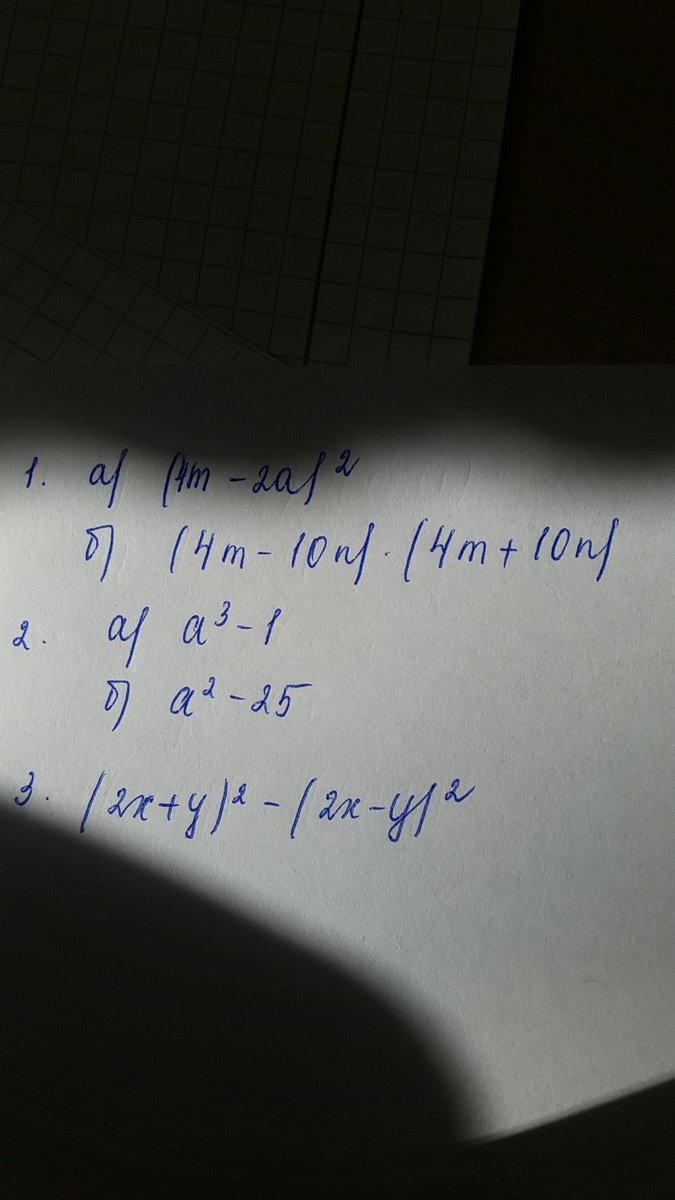 1. а) (4m - 2a)²
б) (4m - 10n) · (4m + 10n)
2. а) a³ - 1
б) a² - 25
3. (2x+y)² - (2x-y)²